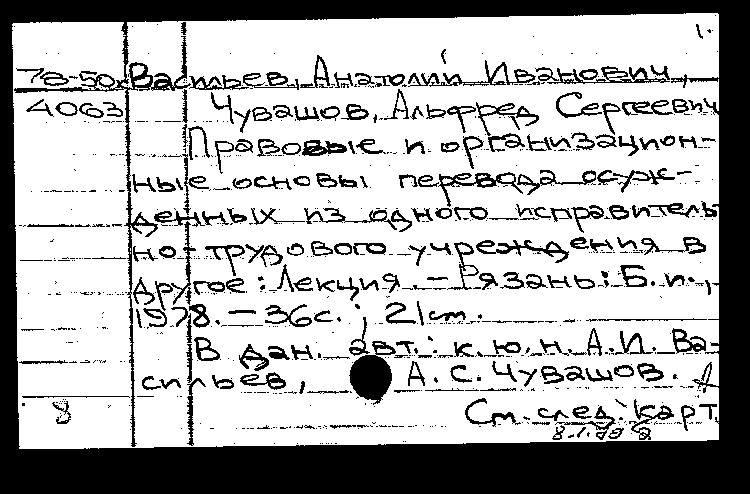 1.
78-50х Васильев, Анатолий Иванович,
4063 Чувашов, Альфред Сергеевич
Правовые и организацион-
ные основы перевода осуж-
денных из одного исправитель-
но-трудового учреждения в
другое: Лекция. — Рязань: Б.и.,
1978. — 36с.; 21см.
В дан. авт.: к.ю.н. А.И. Ва-
сильев, А.С. Чувашов.
8 См. след. карт.